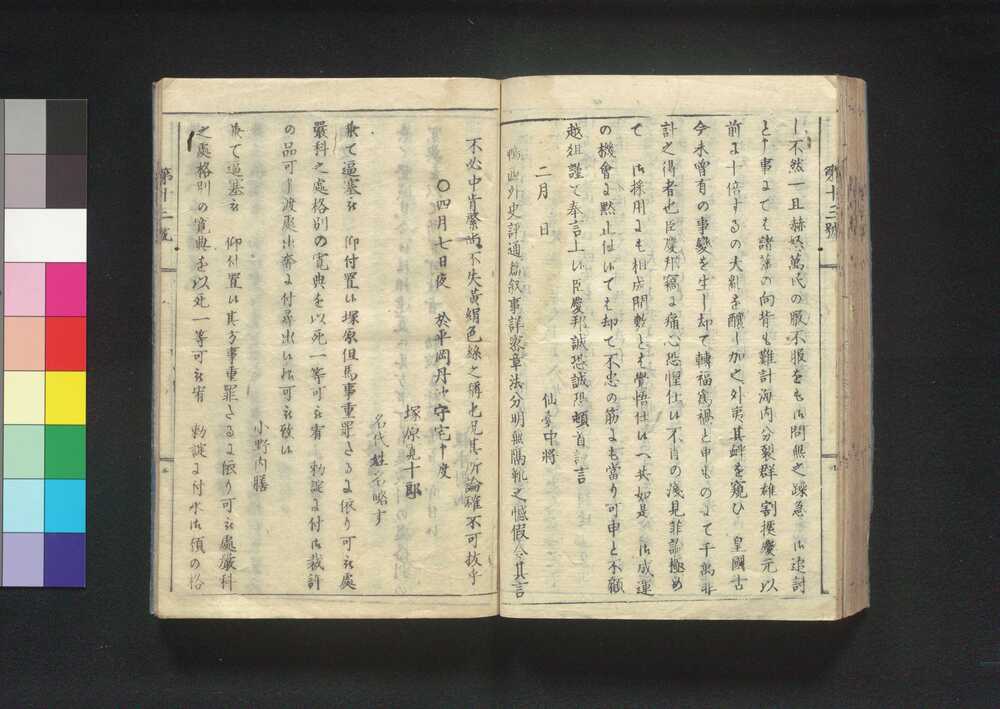 第十三號
し不然一旦赫怒萬民の服不服をも御問無之躁急 御追討
と申事にても諸藩の向背も難計海内分裂群雄割據慶元以
前に十倍するの大亂を釀し加之外夷其釁を窺ひ 皇國古
今未曾有の事變を生し却て轉福爲禍と申ものにて千萬非
計之得者也臣慶邦竊に痛心恐惶仕候不肖の淺見非論極め
て 御採用にも相成間敷とも覺悟仕候へ共如是 御成運
の機會に默止仕ては却て不忠の筋にも當り可申と不顧
越俎謹て奉言上候臣慶邦誠恐誠恐頓首謹言
二月 日 仙臺中將
外史評通篇叙事詳密章法分明無隔靴之憾假令其言
不必中肯綮尚不失黄絹色絲之稱也况其所論確不可拔乎
○四月七日夜 於平岡丹波守宅申度
塚原寛十郎
名代姓名略す
兼て逼塞被 仰付置候塚原但馬事重罪たるに依り可被處
嚴科之處格別の寛典を以死一等可被宥 勅諚に付御裁許
の品可申渡處出奔に付尋出候松可被致候
小野内膳
兼て逼塞被 仰付置候其方事重罪たるに依り可被處嚴科
之處格別の寛典を以死一等可被宥 勅諚に付水御預の格
第十三號